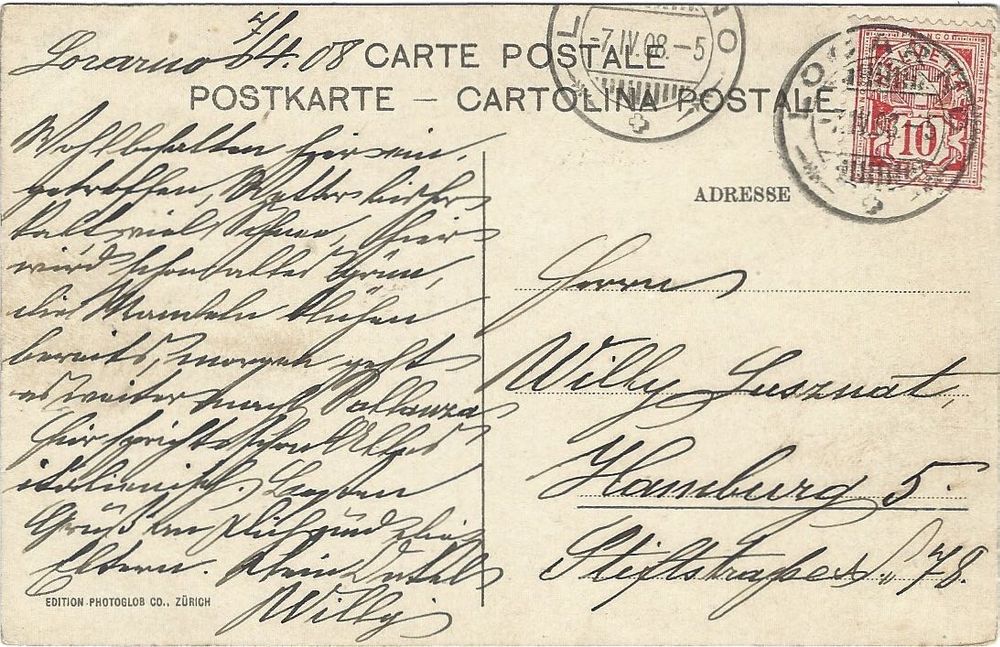 Locarno 7/4.08
CARTE POSTALE
POSTKARTE – CARTOLINA POSTALE
LO
-7.IV.08.-5
O
LO
FRANCO
HELVETIA
10
Wohlbehalten hier ein-
getroffen, Wetter bisher
kalt, viel Schnee, hier
wird schon alles Grün,
die Mandeln blühen
bereits, morgen geht
es weiter nach Pallanza
hier spricht schon Alles
italienisch. Besten
Gruß an Dich und die
Eltern. Dein
Willy
ADRESSE
Herrn
Willy Lusznat,
Hamburg 5.
Stiftstraße No 78.
EDITION PHOTOGLOB CO., ZÜRICH